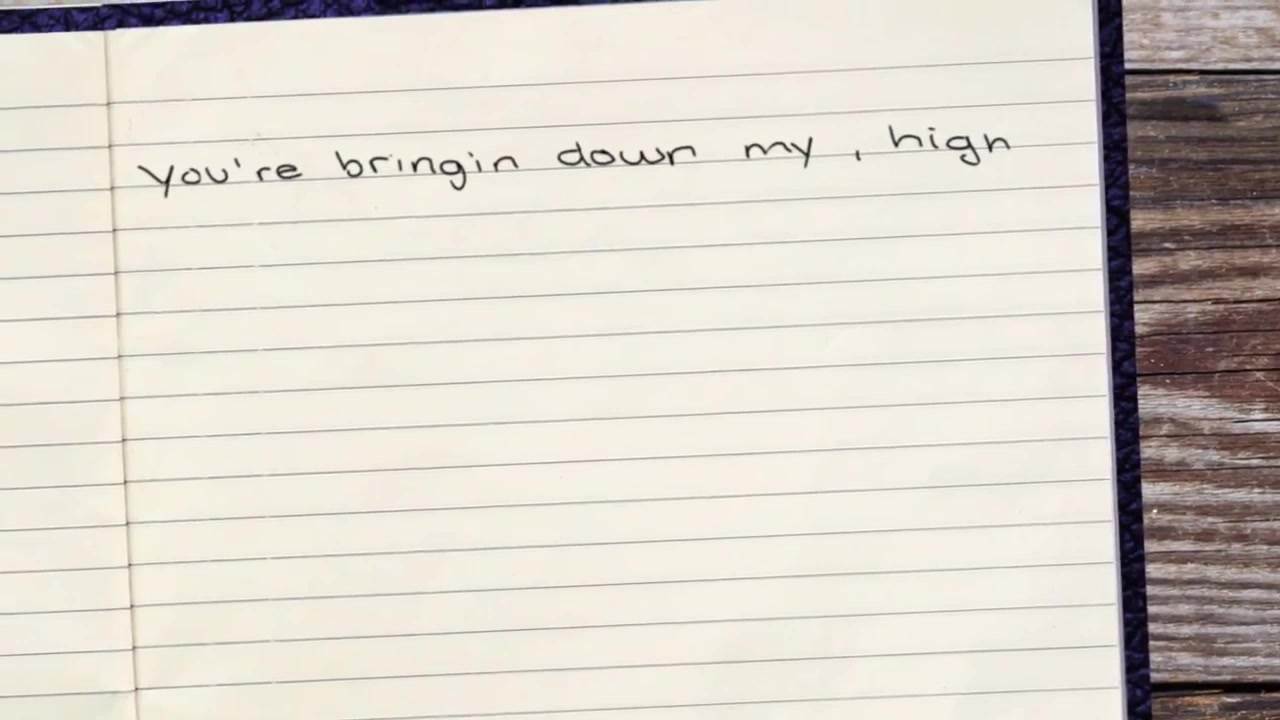 You're bringin down my , high